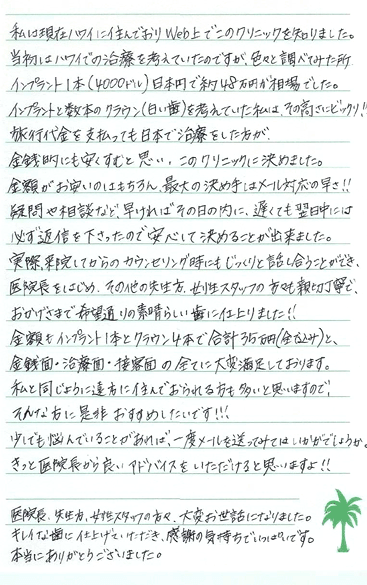 私は現在ハワイに住んでおりWeb上でこのクリニックを知りました。
当初はハワイでの治療を考えていたのですが、色々と調べてみた所
インプラント1本(4000ドル)日本円で約48万円が相場でした。
インプラントと数本のクラウン(白い歯)を考えていた私は、その高さにビックリ!!
旅行代金を支払っても日本で治療をした方が、
金銭的にも安くすむと思い、このクリニックに決めました。
金額がお安いのはもちろん、最大の決め手はメール対応の早さ!!
疑問や相談など、早ければその日の内に、遅くても翌日中には
必ず返信を下さったので安心して決めることが出来ました。
実際来院してからのカウンセリング時にもじっくりと話し合うことができ、
医院長をはじめ、その他の先生方、女性スタッフの方々も親切丁寧で、
おかげさまで希望通りの素晴らしい歯に仕上りました!!
金額もインプラント1本とクラウン4本で合計35万円(全て込み)と、
金銭面・治療面・接客面の全てに大変満足しております。
私と同じように遠方に住んでおられる方も多いと思いますので、
そんな方に是非おすすめしたいです!!!
少しでも悩んでいることがあれば、一度メールを送ってみてはいかがでしょうか。
きっと医院長から良いアドバイスをいただけると思いますよ!!
医院長、先生方、女性スタッフの方々、大変お世話になりました。
キレイな歯に仕上げていただき、感謝の気持ちでいっぱいです。
本当にありがとうございました。